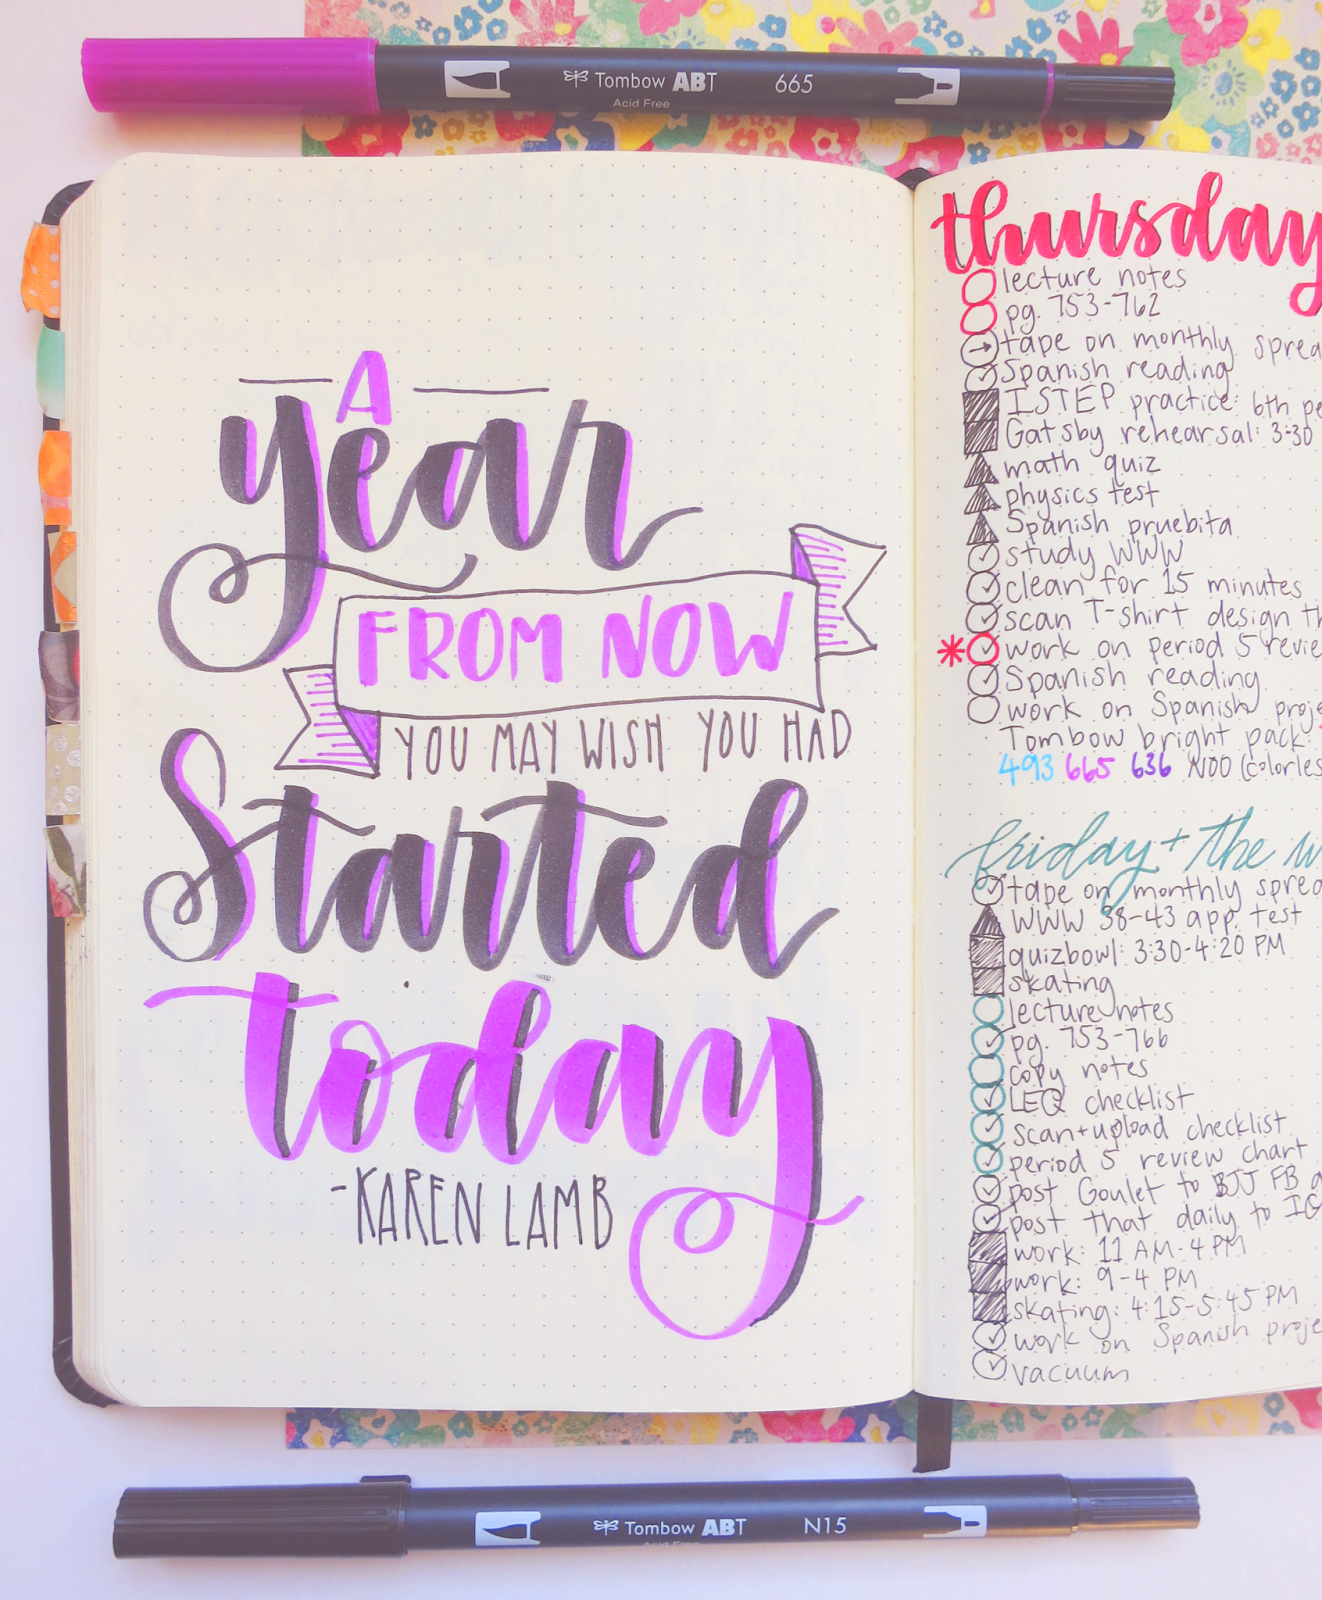 Tombow ABT 665
Acid Free
A
year
FROM NOW
YOU MAY WISH YOU HAD
Started
today
-KAREN LAMB
thursday
lecture notes
pg. 753-762
tape on monthly
Spanish reading
ISTEP practice: 6th
Gatsby rehearsal: 3:30
math quiz
physics test
Spanish pruebita
study WWW
clean for 15 minutes
scan T-shirt design
work on period 5
Spanish reading
work on Spanish
Tombow bright pack
493 665 636 N00
friday + the
tape on monthly
WWW 38-43 app. test
quizbowl: 3:30-4:20 PM
skating
lecture notes
pg. 753-766
copy notes
LEQ checklist
scan+upload checklist
period 5 review chart
post Goulet to BJJ FB
post that daily to IG
work: 11 AM-4 PM
work: 9-4 PM
skating: 4:15-5:45 PM
work on Spanish
vacuum
Tombow ABT N15
Acid Free